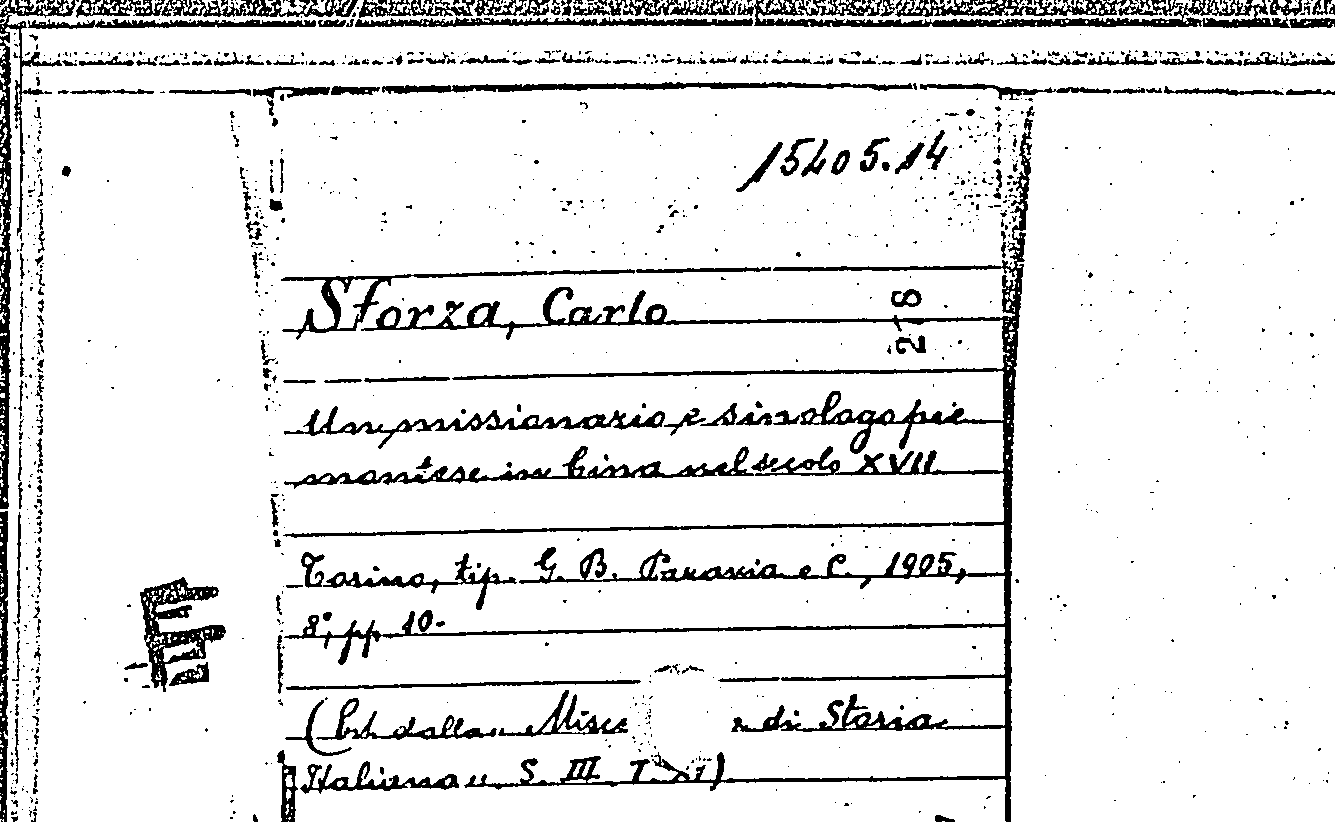 15405.14
Sforza, Carlo
218
Un missionario e sinologo pie
montese in Cina nel secolo XVII
Torino, tip. G. B. Paravia e C., 1905,
8°, pp. 10.
(Est. dalla „ Misce e di Storia
Italiana „ S. III T. XI)